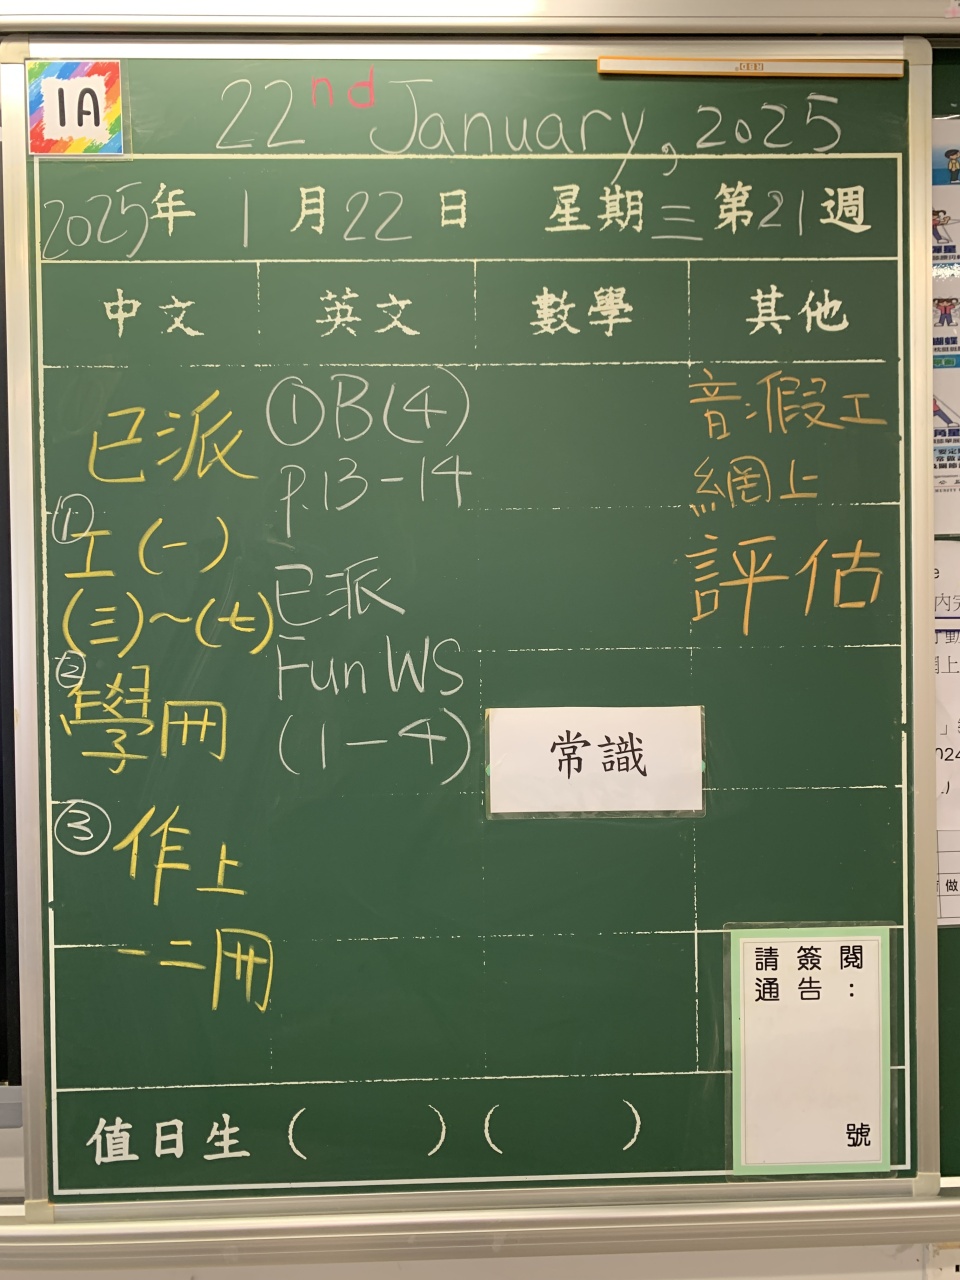 1A
22nd January, 2025
2025年 1月22日 星期三 第21週
中文 英文 數學 其他
已派
①工(一)
(三)~(七)
②學冊
③作上
一二冊
①B(4)
p.13-14
已派
Fun WS
(1-4)
音:假工
網上
評估
常識
請簽閱
通告:
號
值日生( )( )